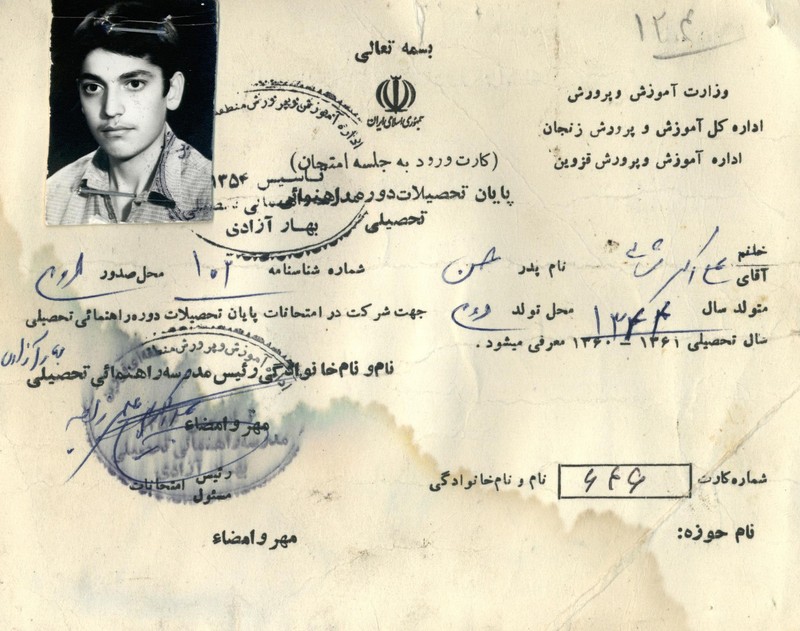 ۱۲۴
بسمه تعالی
جمهوری اسلامی ایران
وزارت آموزش و پرورش
اداره کل آموزش و پرورش زنجان
اداره آموزش و پرورش قزوین
اداره آموزش و پرورش منطقه
(کارت ورود به جلسه امتحان)
تاسیس ۱۳۵۴
پایان تحصیلات دوره راهنمائی
تحصیلی
بهار آزادی
خانم
آقای علی اکبر نام پدر حسن شماره شناسنامه ۱۰۲ محل صدور
متولد سال ۱۳۴۴ محل تولد جهت شرکت در امتحانات پایان تحصیلات دوره راهنمائی تحصیلی
سال تحصیلی ۱۳۶۱ – ۱۳۶۰ معرفی میشود .
بهار آزادی
آموزش و پرورش منطقه
نام و نام خانوادگی رئیس مدرسه راهنمائی تحصیلی
مهر و امضاء
مدرسه راهنمائی تحصیلی
بهار آزادی
شماره کارت ۶۴۶ نام و نام خانوادگی
رئیس امتحانات
مسئول
نام حوزه:
مهر و امضاء